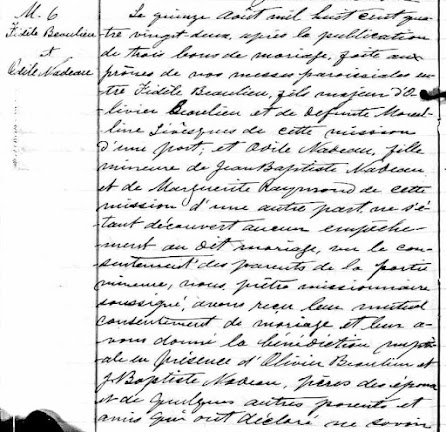 M. 6
Fidèle Beaulieu
et
Odile Nadeau
Le quinze août mil huit cent qua
tre vingt deux, après la publication
de trois bans de mariage, faite aux
prônes de nos messes paroissiales en
tre Fidèle Beaulieu, fils majeur d'O
livier Beaulieu et de defunte Marcel
line Lévesque de cette mission
d'une part, et Odile Nadeau, fille
mineure de Jean Baptiste Nadeau
et de Marguerite Raymond de cette
mission d'une autre part ne s'é
tant découvert aucun empêche
ment au dit mariage, vu le con
sentement des parents de la partie
mineure, nous, prêtre missionnaire
soussigné, avons reçu leur mutuel
consentement de mariage et leur a
vons donné la bénédiction nupti
ale en présence d'Olivier Beaulieu et
J. Baptiste Nadeau, pères des époux
et de quelques autres parents et
amis qui ont déclaré ne savoir